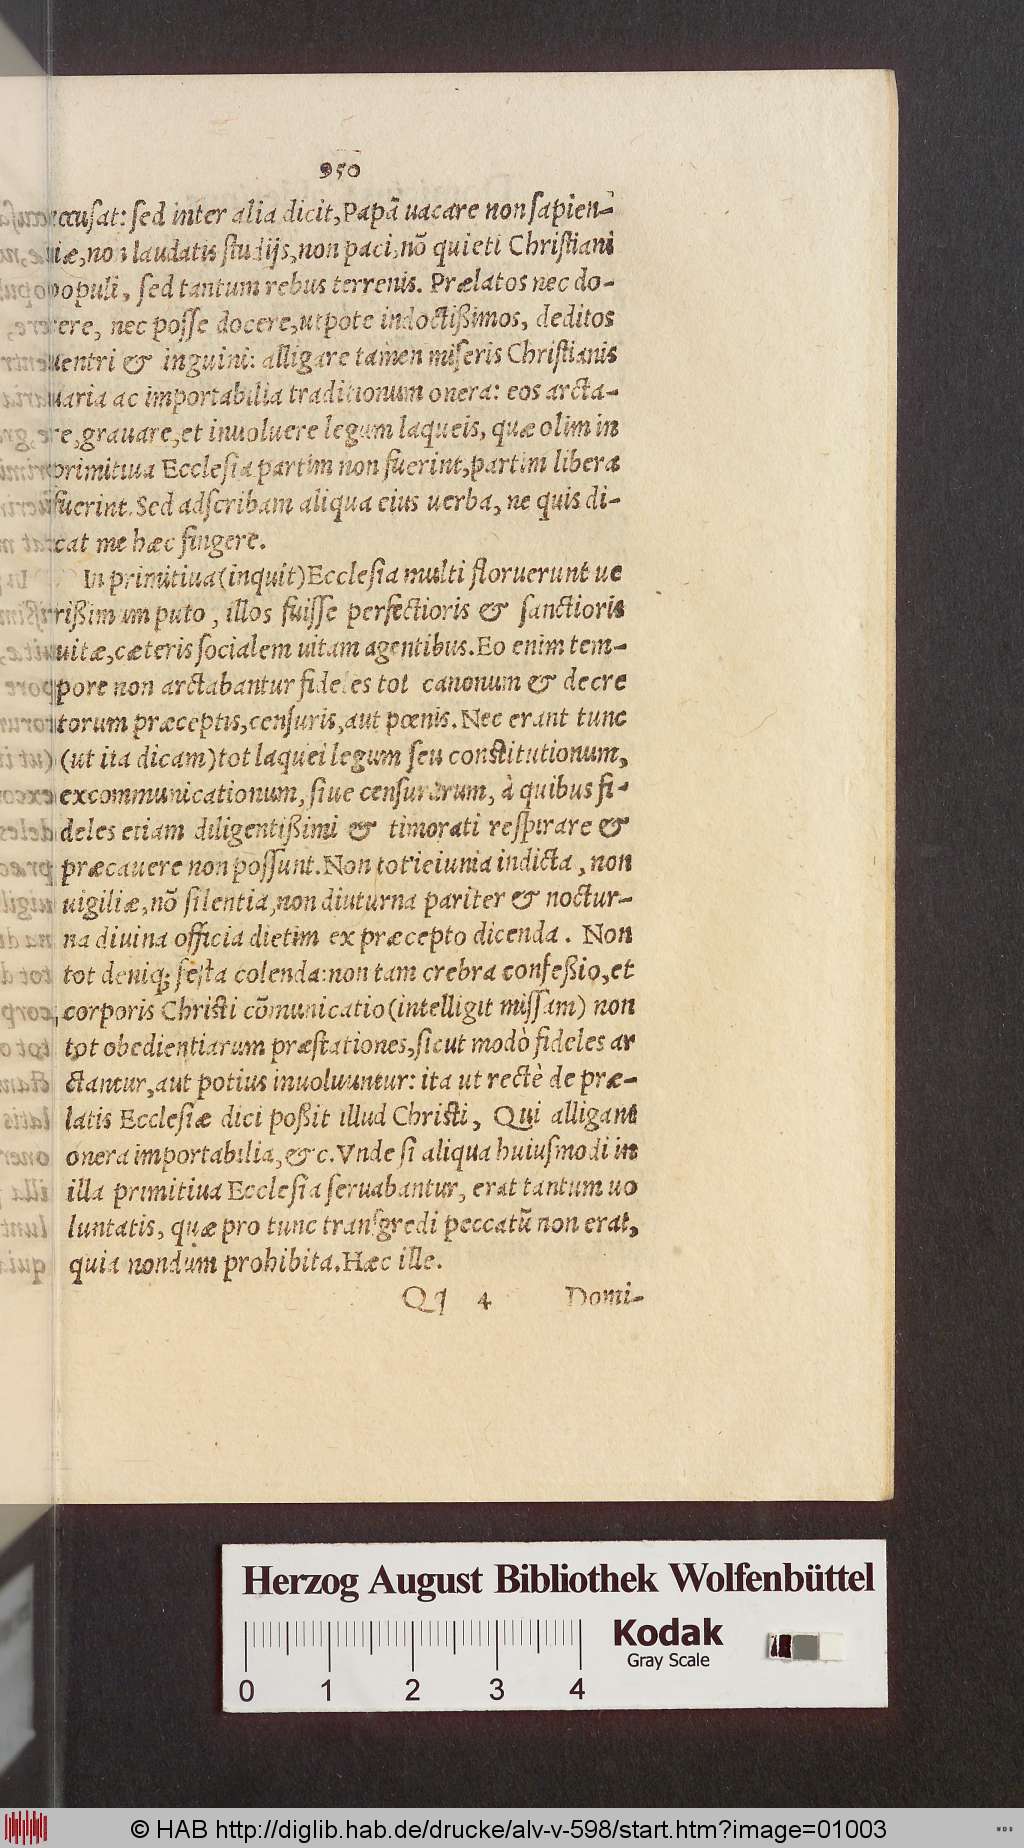 950
accusat: sed inter alia dicit, Papã uacare non sapien-
tiæ, non laudatis studijs, non paci, nõ quieti Christiani
populi, sed tantum rebus terrenis. Prælatos nec do-
cere, nec posse docere, utpote indoctißimos, deditos
uentri & inguini: alligare tamen miseris Christianis
uaria ac importabilia traditionum onera: eos arcta-
re, grauare, et inuoluere legum laqueis, quæ olim in
primitiua Ecclesia partim non fuerint, partim libera
fuerint. Sed adscribam aliqua eius uerba, ne quis di-
cat me hæc fingere.
In primitiua (inquit) Ecclesia multi floruerunt ue
rißimum puto, illos fuisse perfectioris & sanctioris
uitæ, cæteris socialem uitam agentibus. Eo enim tem-
pore non arctabantur fideles tot canonum & decre
torum præceptis, censuris, aut pœnis. Nec erant tunc
(ut ita dicam) tot laquei legum seu constitutionum,
excommunicationum, siue censurarum, à quibus fi-
deles etiam diligentißimi & timorati respirare &
præcauere non possunt. Non tot ieiunia indicta, non
uigiliæ, nõ silentia, non diuturna pariter & noctur-
na diuina officia dietim ex præcepto dicenda. Non
tot deniq; festa colenda: non tam crebra confeßio, et
corporis Christi cõmunicatio (intelligit missam) non
tot obedientiarum præstationes, sicut modò fideles ar
ctantur, aut potius inuoluuntur: ita ut rectè de præ-
latis Ecclesiæ dici poßit illud Christi, Qui alligant
onera importabilia, &c. Vnde si aliqua huiusmodi in
illa primitiua Ecclesia seruabantur, erat tantum uo
luntatis, quæ pro tunc transgredi peccatũ non erat,
quia nondum prohibita. Hæc ille.
Qq 4 Domi-
Herzog August Bibliothek Wolfenbüttel
Kodak
Gray Scale
0 1 2 3 4
© HAB http://diglib.hab.de/drucke/alv-v-598/start.htm?image=01003